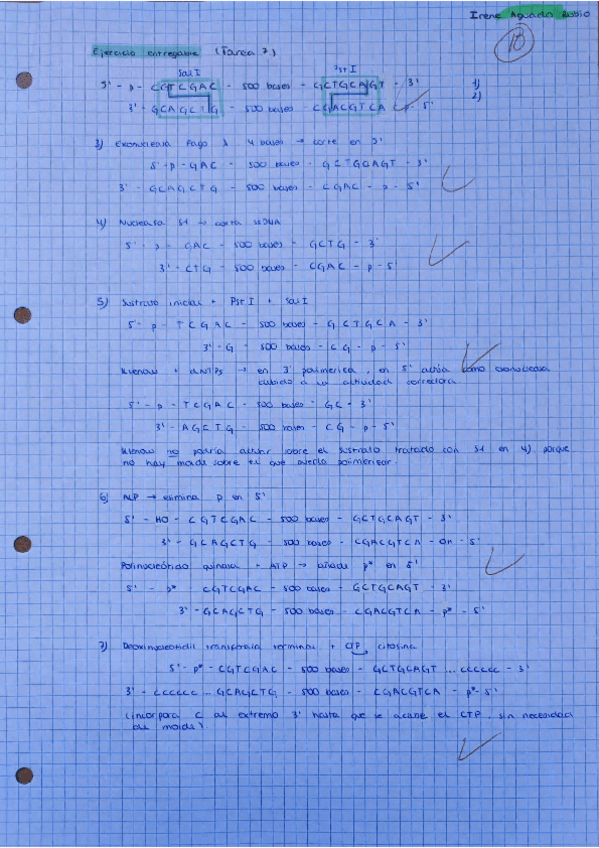 Irene Aguado Rubio
10
Ejercicio entregable (Tarea 7)
Sal I Pst I
5' - p - CGTCGAC - 500 bases - GCTGCAGT - 3' 1)
3' - GCAGCTG - 500 bases - CGACGTCA - p - 5' 2)
3) Exonucleasa Fago λ 4 bases → corte en 5'
5' - p - GAC - 500 bases - GCTGCAGT - 3'
3' - GCAGCTG - 500 bases - CGAC - p - 5'
4) Nucleasa S1 → corta ssDNA
5' - p - GAC - 500 bases - GCTG - 3'
3' - CTG - 500 bases - CGAC - p - 5'
5) Sustrato inicial + Pst I + Sal I
5' - p - TCGAC - 500 bases - GCTGCA - 3'
3' - G - 500 bases - CG - p - 5'
Klenow + dNTPs → en 3' polimeriza, en 5' actúa como exonucleasa
debido a su actividad correctora
5' - p - TCGAC - 500 bases - GC - 3'
3' - AGCTG - 500 bases - CG - p - 5'
Klenow no podría actuar sobre el sustrato tratado con S1 en 4) porque
no hay molde sobre el que pueda polimerizar.
6) ALP → elimina p en 5'
5' - HO - CGTCGAC - 500 bases - GCTGCAGT - 3'
3' - GCAGCTG - 500 bases - CGACGTCA - OH - 5'
Polinucleótido quinasa + ATP → añade p* en 5'
5' - p* - CGTCGAC - 500 bases - GCTGCAGT - 3'
3' - GCAGCTG - 500 bases - CGACGTCA - p* - 5'
7) transferasa terminal + CTP citosina
5' - p* - CGTCGAC - 500 bases - GCTGCAGT ... CCCCCC - 3'
3' - CCCCCC ... GCAGCTG - 500 bases - CGACGTCA - p* - 5'
(incorpora C al extremo 3' hasta que se acabe el CTP, sin necesidad
de molde).